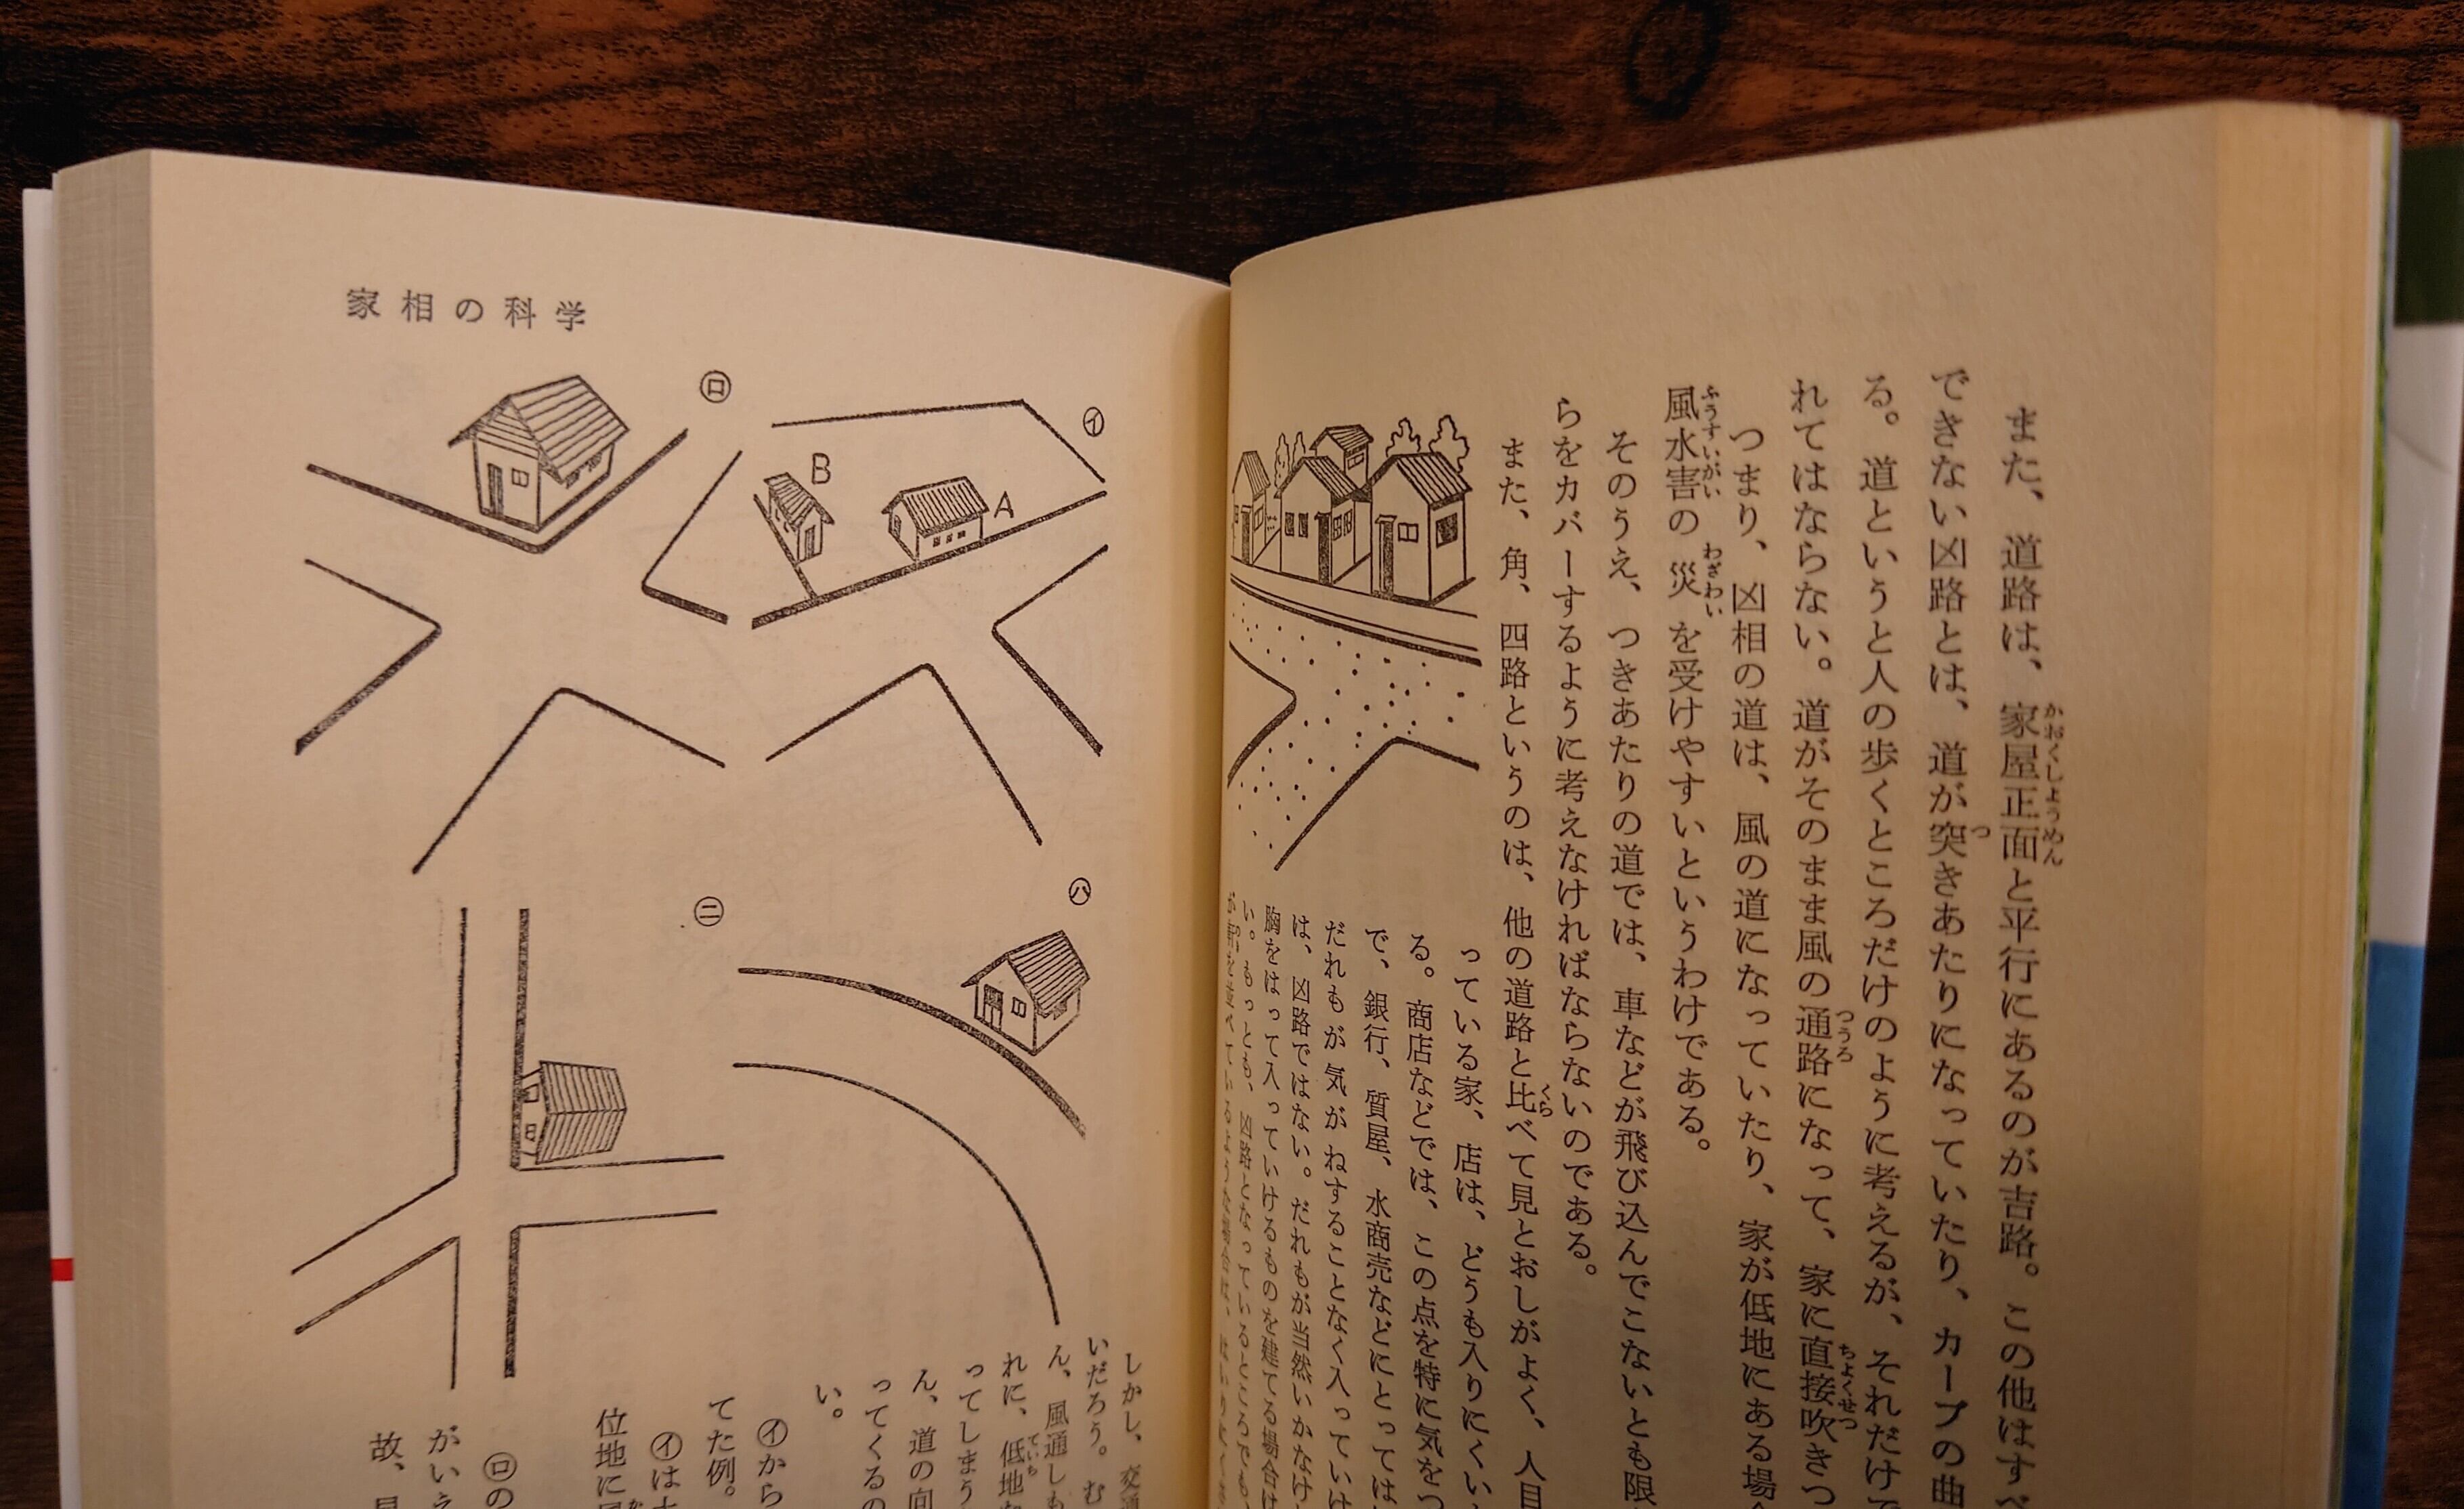 また、道路は、家屋正面と平行にあるのが吉路。この他はすべ
かおくしょうめん
できない凶路とは、道が突きあたりになっていたり、カーブの曲
つ
る。道というと人の歩くところだけのように考えるが、それだけで
れてはならない。道がそのまま風の通路になって、家に直接吹きつ
つうろ
ちょくせつ
つまり、凶相の道は、風の道になっていたり、家が低地にある場合
風水害の災を受けやすいというわけである。
ふうすいがい
わざわい
そのうえ、つきあたりの道では、車などが飛び込んでこないとも限
らをカバーするように考えなければならないのである。
また、角、四路というのは、他の道路と比べて見とおしがよく、人目
くら
っている家、店は、どうも入りにくい
る。商店などでは、この点を特に気をつ
で、銀行、質屋、水商売などにとっては
だれもが気がねすることなく入っていけ
は、凶路ではない。だれもが当然いかなけ
胸をはって入っていけるものを建てる場合は
い。もっとも、凶路となっているところでも、
家相の科学
イ
A
B
ロ
ハ
ニ
しかし、交通
いだろう。む
ん、風通しも
れに、低地な
ていち
ってしまう
ん、道の向
ってくるの
い。
イから
てた例。
イは
位地に
ロの
がいえ
故、